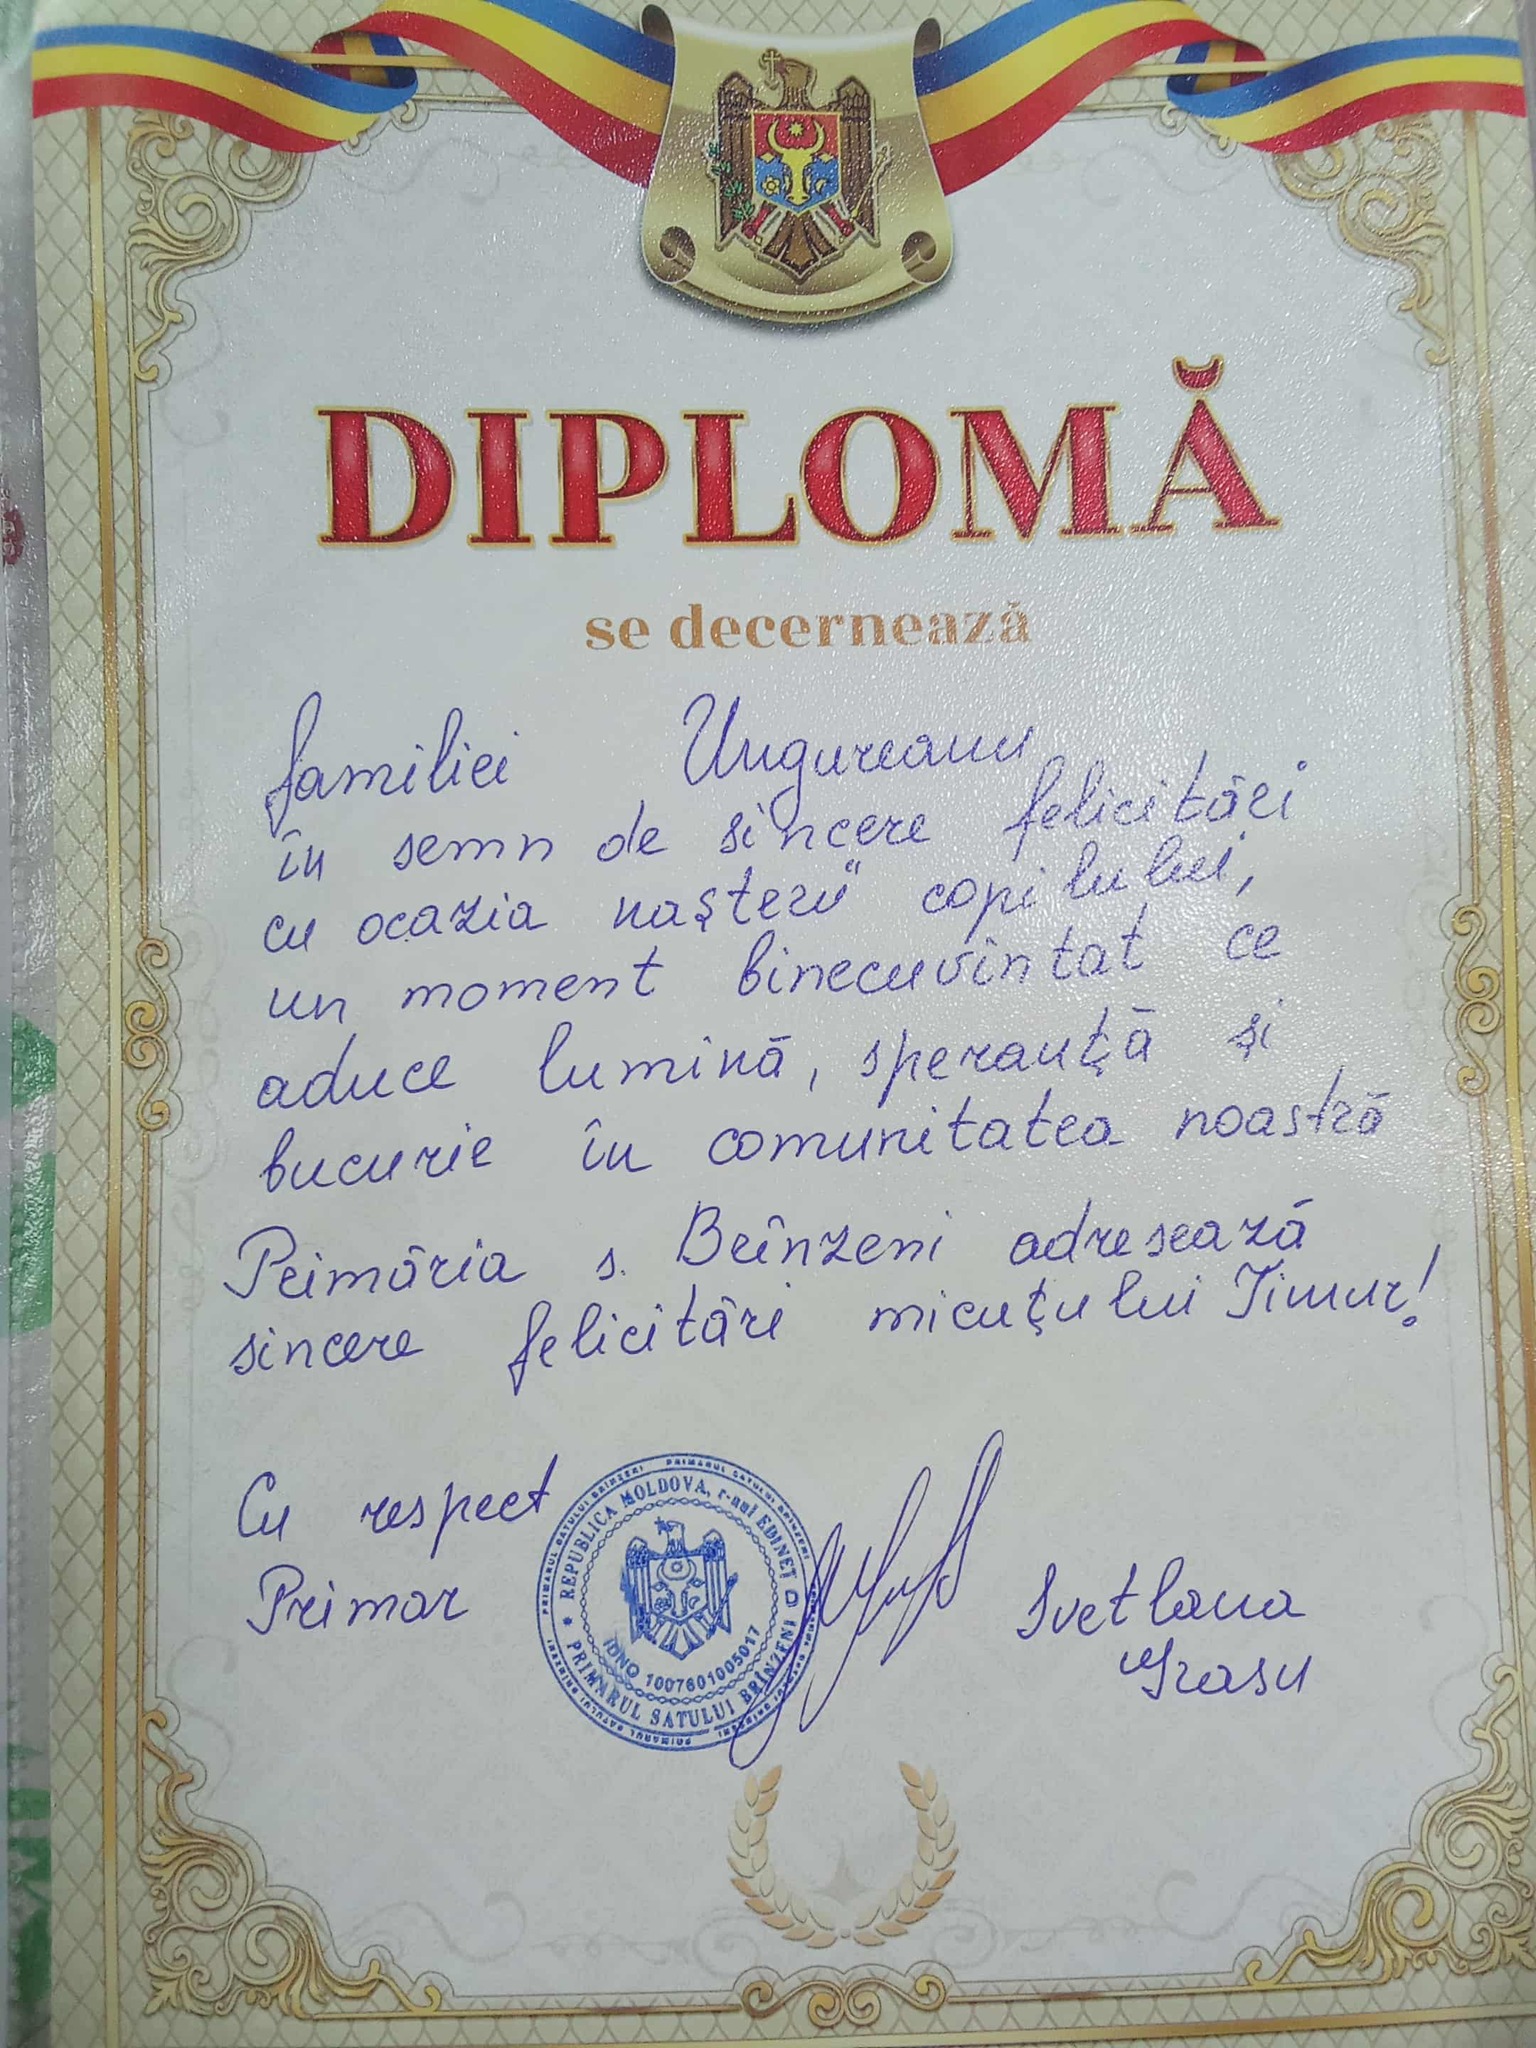 DIPLOMĂ
se decernează
familiei Ungureanu
în semn de sincere felicitări
cu ocazia nașterii copilului,
un moment binecuvîntat ce
aduce lumină, speranță și
bucurie în comunitatea noastră
Primăria s. Brînzeni adresează
sincere felicitări micuțului Timur!
Cu respect
Primar
REPUBLICA MOLDOVA, r-nul EDINEȚ
PRIMARUL SATULUI BRÎNZENI
IDNO 1007601005017
Svetlana